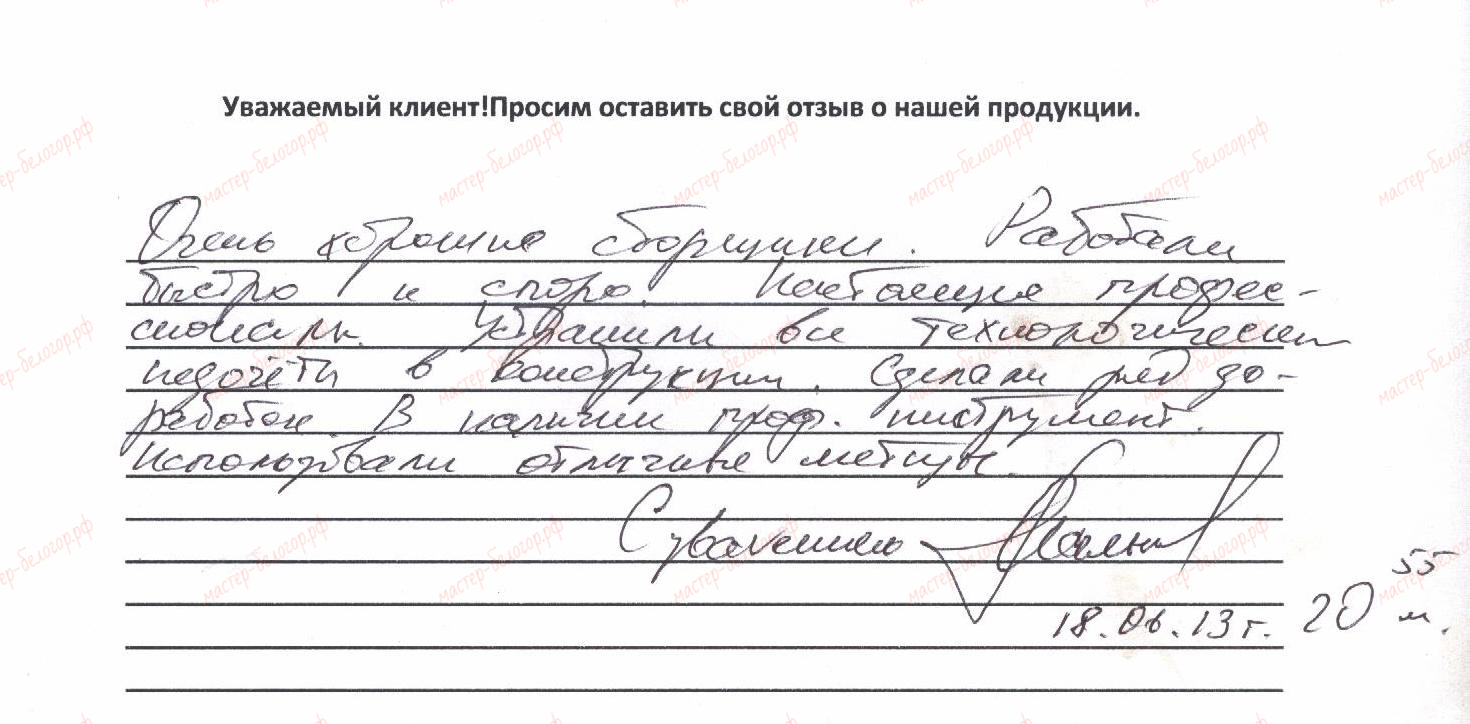 Уважаемый клиент!Просим оставить свой отзыв о нашей продукции.
Очень хорошие сборщики. Работали
быстро и споро. Настоящие профес-
сионалы. Устранили все технологические
недочёты в конструкции. Сделали ряд до-
работок. В наличии проф. инструмент.
Использовали отличные метизы.
С уважением
18.06.13 г. 20 55 м.
мастер-белогор.рф